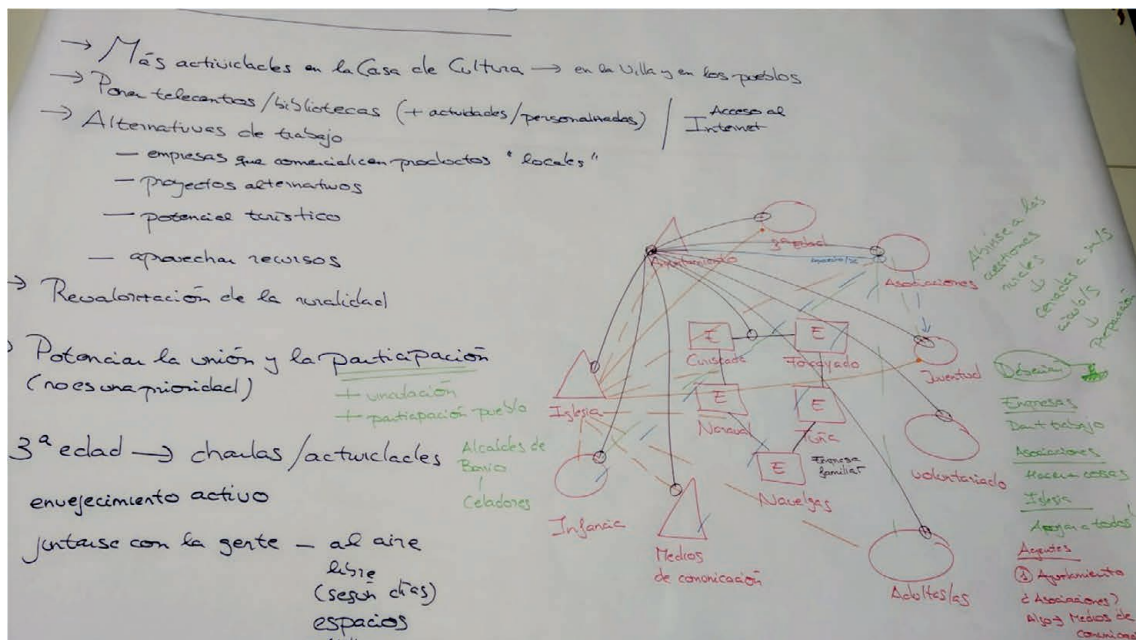 → Más actividades en la Casa de Cultura → en la Villa y en los pueblos
→ Poner telecentros/bibliotecas (+ actividades/personalizadas) / Acceso al
Internet
→ Alternativas de trabajo
— empresas que comercialicen productos "locales"
— proyectos alternativos
— potencial turístico
— aprovechar recursos
→ Revalorización de la ruralidad
Potenciar la unión y la participación
(no es una prioridad)
+ vinculación
+ participación pueblo
3ª edad → charlas/actividades
envejecimiento activo
juntarse con la gente — al aire
libre
(según días)
espacios
Alcaldes de
Barrio
Celadores
3ª edad
Ayuntamiento
Asociaciones
E
E
Forcayado
Juventud
Iglesia
E
Naraval
E
Tuña
Empresa
familiar
E
Navelgas
Voluntariado
Infancia
Medios
de comunicación
Adultos/as
Abrirse a los
cerradas a su/s
círculo/s
↓
Preparación
Deberían
Empresas
Dar + trabajo
Asociaciones
Hacer + cosas
Iglesia
Apoyar a todos
Agentes
① Ayuntamiento
¿Asociaciones?
Algo → Medios de